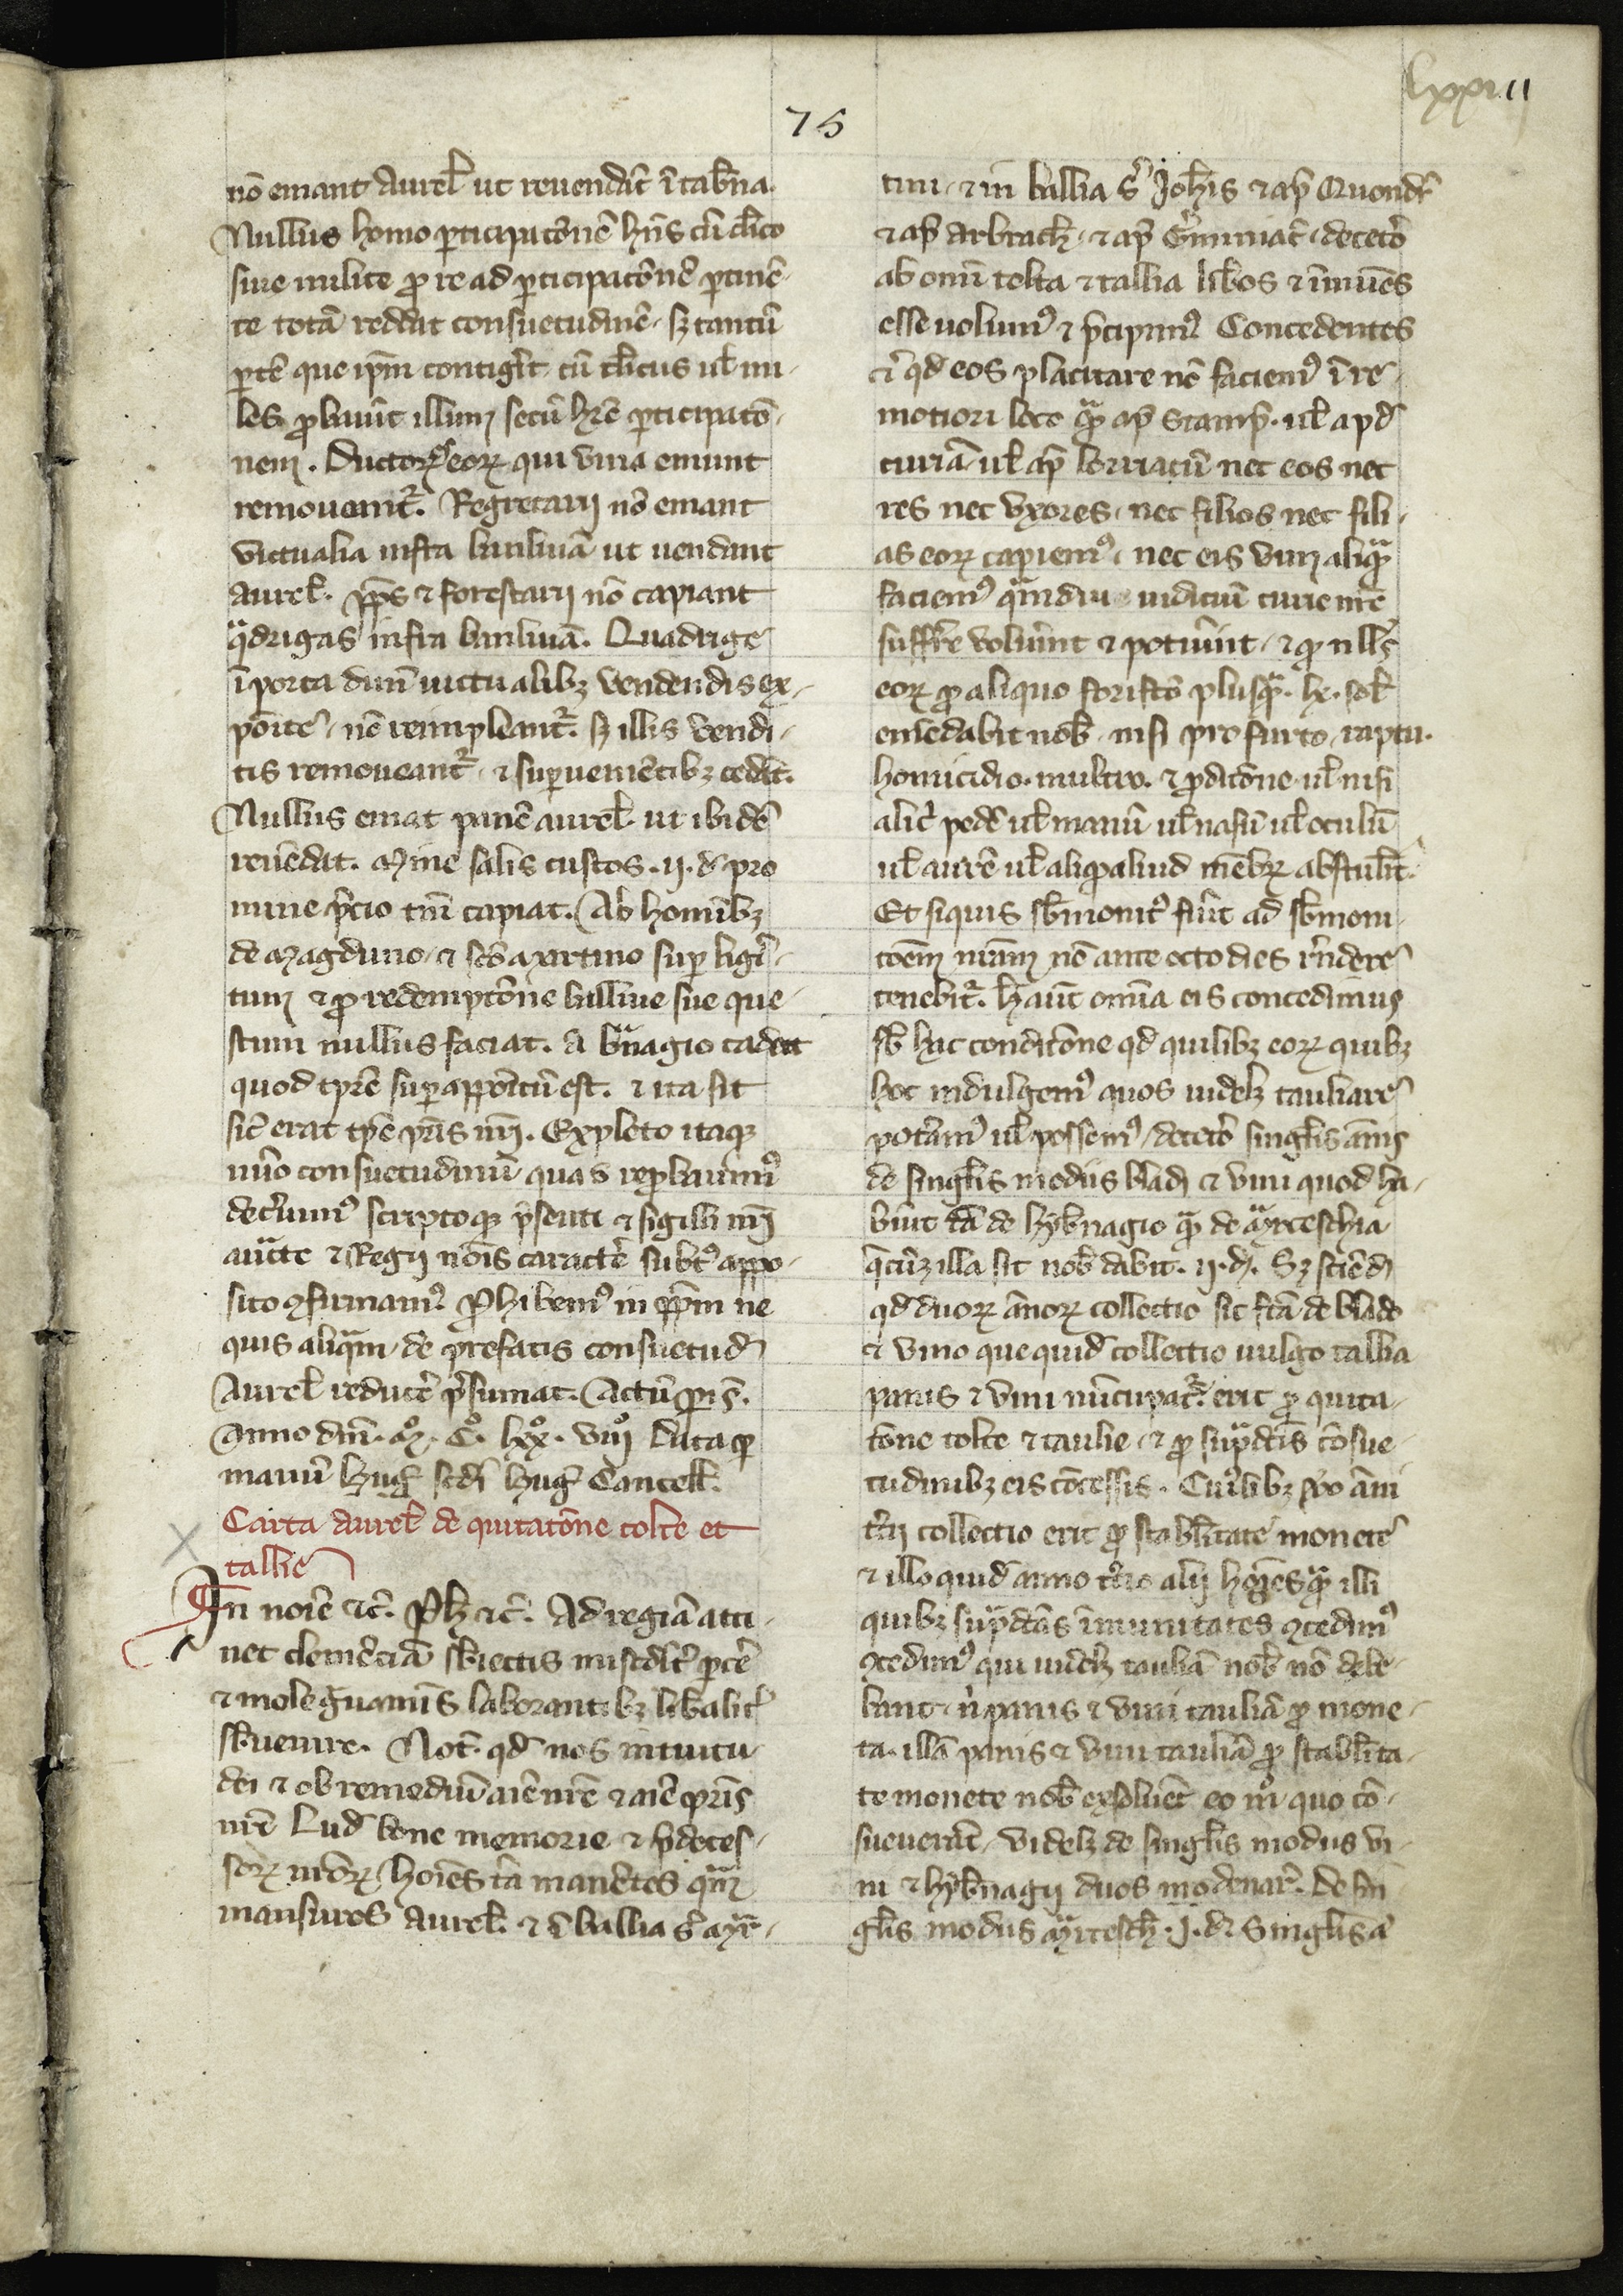 lxxiii
75
nō emant Aurel̄ ut reuendāt ī tab̄na.
Nullus homo ꝑticipatōnē hn̄s cū cl̄ico
siue milite ꝓ re ad ꝑticipatōnē ꝑtinē-
te totā reddat consuetudinē. sꝫ tantū
ꝑtē que ip̄m contiḡit cū cl̄icus ul̄ mi-
les ꝓbau̇int illum secū hr̄e ꝑticipatō-
nem. Ductoꝝ eoꝝ qui vina emunt
remoueant᷑. Regretarij nō emant
victualia infra banliuā ut uendant
Aurel̄. ꝓp̄s ⁊ forestarij nō capiant
qͣdrigas infra banliuā. Quadrige
ī porta dum̄ uictualibꝫ vendendis ex-
poīte. nō reimpleant᷑. sꝫ illis vendi-
tis remoueant᷑. ⁊ suꝑuenientibꝫ cedāt.
Nullus emat panē aurel̄. ut ibidē
reuēdat. Mine salis custos .ij. d̄ pro
mine p̄cio tm̄ capiat. Ab hominibꝫ
de Magduno. ⁊ sc̄o martino suꝑ ligi-
tum ⁊ ꝓ redemptōne balliue sue que-
stum nullus faciat. A bͣnagio cadat
quod tp̄re suꝑappoītū est. ⁊ ita sit
sic̄ erat tp̄e pr̄is nr̄i. Expleto itaqꝫ
nūo consuetudinū quas reꝓbauimꝰ
decreuimꝰ scriptoqꝫ p̄senti ⁊ sigilli nr̄i
aucte ⁊ Regij nōis caractēe subtꝰ appo-
sito ꝯfirmamꝰ. Ꝓhibemꝰ in ꝑpm̄ ne
quis aliqͣm de prefatis consuetud̄
Aurel̄ reducē p̄sumat. Actū ꝑis̄.
Anno dn̄i. Mͦ. Cͦ. lxͦxͦ. viijͦ Data ꝑ
manū huḡ scd̄i huḡ Cancell̄.
Carta aurel̄ de quitatōne tolte et
tallie
In noīe ⁊c̄. Ph̄ ⁊c̄. Ad regiā atti-
net clemētiā sb̄iectis misc̄dit̄ ꝑcē
⁊ mole gͣuaminis laborantibꝫ lib̄alit̄
sb̄uenire. Not̄. qd̄ nos intuitu
dei ⁊ ob remediū aīe nr̄e ⁊ aīe pr̄is
nr̄i Lud̄ bone memorie ⁊ p̄deces-
soꝝ nr̄oꝝ hoīes tā manētes qͣm
mansuros Aurel̄. ⁊ ī ballia sͥ mar-
tini. ⁊ in ballia sͥ Joh̄is ⁊ ap̄ Quond̄r
⁊ ap̄ Arbrach̄. ⁊ ap̄ Gͥmmiac̄. decetō
ab omī tolta ⁊ tallia lib̄os ⁊ īmunes
esse uolumꝰ ⁊ p̄cipimꝰ Concedentes
eī qd̄ eos placitare nō faciemꝰ ī re-
motiori loco qͣm ap̄ stamp̄. ul̄ apd̄
curiā ul̄ ap̄ lorriacū nec eos nec
res nec vxores. nec filios nec fili-
as eoꝝ capiemꝰ. nec eis vim aliqͣm
faciemꝰ qͣmdiu iudiciū curie nr̄e
suffr̄e volu̇int ⁊ potu̇int. ⁊ qd̄ nll̄s
eoꝝ ꝓ aliquo forifcō plusqͣm. lx. sol̄
emēdabit nob̄. nisi pro furto. raptu.
homicidio. multro. ⁊ ꝓditōne. ul̄ nisi
alic̄ pedē ul̄ manū ul̄ nasū ul̄ oculū
ul̄ aurē ul̄ aliqd̄ aliud mēbꝝ abstul̄it.
Et siquis sb̄monitꝰ fu̇it ad sb̄moni-
tōem nrām nō ante octo dies r̄ndere
tenebit᷑. H̄ aūt omīa eis concedimus
sb̄ hac conditōne qd̄ quilibꝫ eoꝝ quibꝫ
hoc indulgemꝰ quos uidelꝫ tauliare
poteramꝰ ul̄ possemꝰ. decetō singl̄is ānis
de singl̄is modiis bladi ⁊ vini quod ha-
bu̇int tā de hyb̄nagio qͣm de marceschia
qͣcūqꝫ illa sit nob̄ dabit. ij. d̄. Sꝫ sciēd̄
qd̄ duoꝝ ānoꝝ collectio sic fc̄ā de blado
⁊ vino que quid̄ collectio uulgo tallia
panis ⁊ vini nūcupat᷑. erit ꝓ quita-
tōne tolte ⁊ taulie. ⁊ ꝓ sup̄dc̄is cōsue-
tudinibꝫ eis cōcessis. Cuiꝰlibꝫ ūo āni
tc̄ij collectio erit ꝓ stabl̄itate monete
⁊ illo quid̄ anno tc̄io alij hoīes qͣm illi
quibꝫ sup̄dc̄as īmunitates ꝯcedimꝰ
ꝯcedimꝰ qui uidelꝫ tauliā nob̄ nō debe-
bant. n̄ panis ⁊ vini tauliā ꝓ mone-
ta. illā panis ⁊ vini tauliā ꝓ stabl̄ita-
te monete nob̄ exsoluēt eo mͦ quo cō-
sueuerāt. videlꝫ de singl̄is modiis vi-
ni ⁊ hyb̄nagij duos modenar̄. de sin-
gl̄is modiis marcesch̄. j. d̄. Singl̄is ā